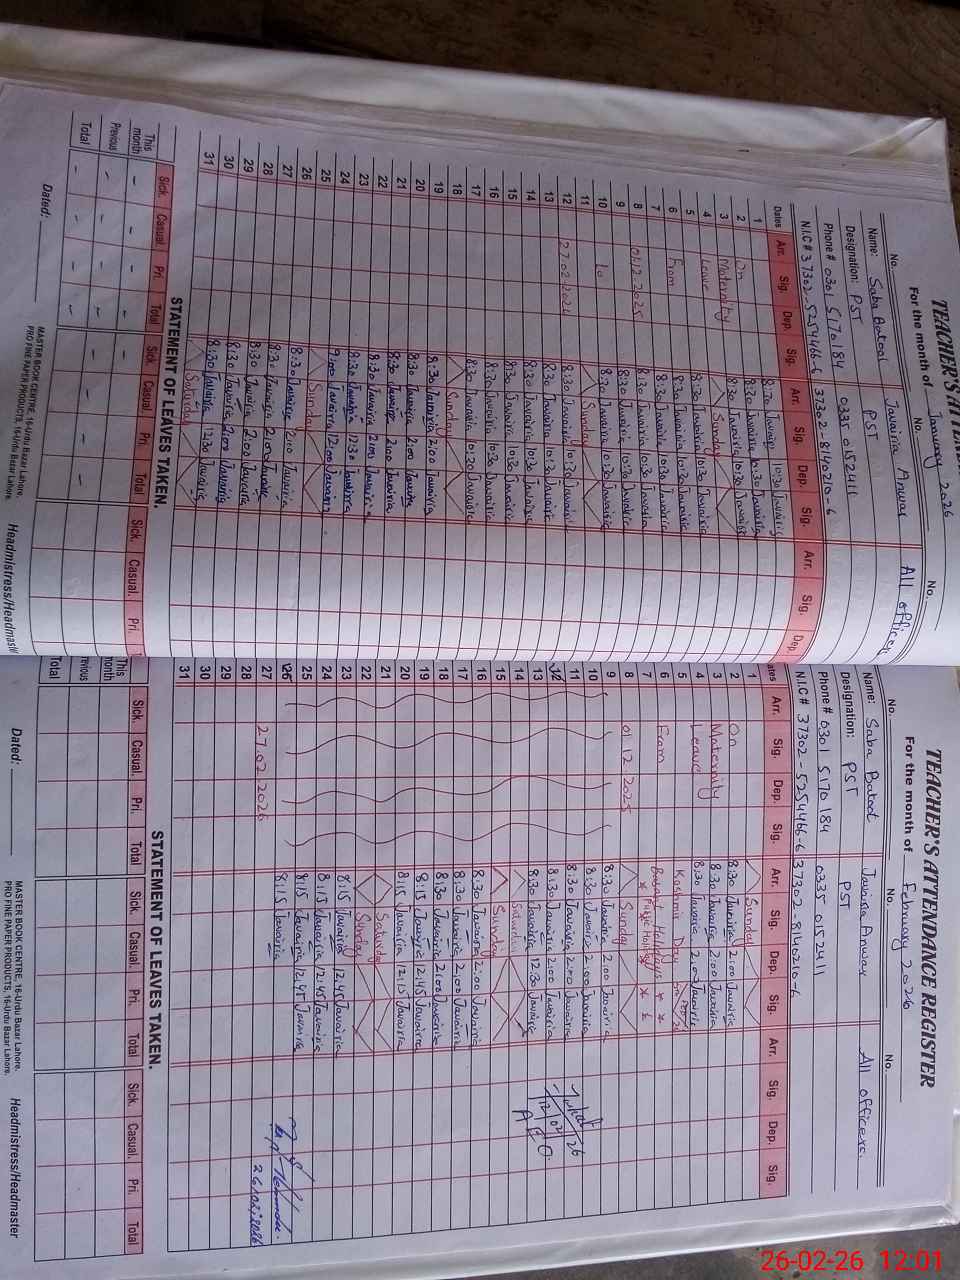 TEACHER'S ATTEN
For the month of January 2026
No. No. No.
Name: Saba Batool Javairia Anwar All officers
Designation: PST PST
Phone # 0301 5170184 0335 0152411
N.I.C # 37302-5254466-6 37302-8140210-6
Dates Arr. Sig. Dep. Sig. Arr. Sig. Dep. Sig. Arr. Sig. Dep.
1 8:30 Javairia 10:30 Javairia
2 On 8:30 Javairia 10:30 Javairia
3 Maternity 8:30 Javairia 10:30 Javairia
4 Leave Sunday
5 8:30 Javairia 10:30 Javairia
6 From 8:30 Javairia 10:30 Javairia
7 8:30 Javairia 10:30 Javairia
8 01.12.2025 8:30 Javairia 10:30 Javairia
9 8:30 Javairia 10:30 Javairia
10 To 8:30 Javairia 10:30 Javairia
11 Sunday
12 27.02.2026 8:30 Javairia 10:30 Javairia
13 8:30 Javairia 10:30 Javairia
14 8:30 Javairia 10:30 Javairia
15 8:30 Javairia 10:30 Javairia
16 8:30 Javairia 10:30 Javairia
17 8:30 Javairia 10:30 Javairia
18 Sunday
19 8:30 Javairia 2:00 Javairia
20 8:30 Javairia 2:00 Javairia
21 8:30 Javairia 2:00 Javairia
22 8:30 Javairia 2:00 Javairia
23 8:30 Javairia 12:30 Javairia
24 9:00 Javairia 12:00 Javairia
25 Sunday
26 8:30 Javairia 2:00 Javairia
27 8:30 Javairia 2:00 Javairia
28 8:30 Javairia 2:00 Javairia
29 8:30 Javairia 2:00 Javairia
30 8:30 Javairia 12:00 Javairia
31 Saturday
STATEMENT OF LEAVES TAKEN.
Sick. Casual. Pri. Total Sick. Casual. Pri. Total Sick. Casual. Pri.
This month
Previous
Total
Dated:
MASTER BOOK CENTRE, 16-Urdu Bazar Lahore.
PRO FINE PAPER PRODUCTS, 16-Urdu Bazar Lahore.
Headmistress/Headmast
TEACHER'S ATTENDANCE REGISTER
For the month of February 2026
No. No. No.
Name: Saba Batool Javairia Anwar All officers.
Designation: PST PST
Phone # 0301 5170184 0335 0152411
N.I.C # 37302-5254466-6 37302-8140210-6
ates Arr. Sig. Dep. Sig. Arr. Sig. Dep. Sig. Arr. Sig. Dep. Sig.
1 Sunday
2 On 8:30 Javairia 2:00 Javairia
3 Maternity 8:30 Javairia 2:00 Javairia
4 Leave 8:30 Javairia 2:00 Javairia
5 Kashmir Day
6 From Basant Holiday
7 * Public Holiday * *
8 01.12.2025 Sunday
9 8:30 Javairia 2:00 Javairia
10 8:30 Javairia 2:00 Javairia
11 8:30 Javairia 2:00 Javairia
12 8:30 Javairia 2:00 Javairia
13 8:30 Javairia 12:30 Javairia
14 Saturday
15 Sunday
16 8:30 Javairia 2:00 Javairia
17 8:30 Javairia 2:00 Javairia
18 8:30 Javairia 2:00 Javairia
19 8:15 Javairia 12:45 Javairia
20 8:15 Javairia 12:15 Javairia
21 Saturday
22 Sunday
23 8:15 Javairia 12:45 Javairia
24 8:15 Javairia 12:45 Javairia
25 8:15 Javairia 12:45 Javairia
26 8:15 Javairia
27 27.02.2026 26/02/2026
28
29
30
31
STATEMENT OF LEAVES TAKEN.
Sick. Casual. Pri. Total Sick. Casual. Pri. Total Sick. Casual. Pri. Total
This month
revious
Total
Dated:
MASTER BOOK CENTRE, 16-Urdu Bazar Lahore.
PRO FINE PAPER PRODUCTS, 16-Urdu Bazar Lahore.
Headmistress/Headmaster
26-02-26 12:01